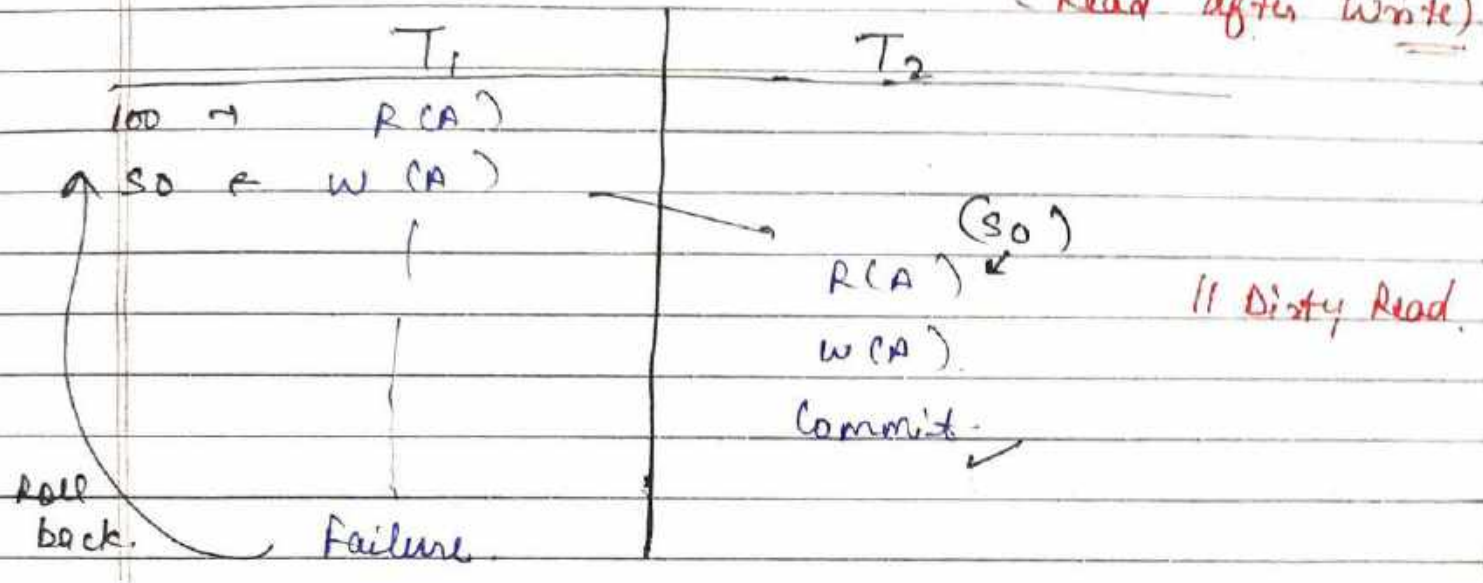 (Read after Write)
T1 T2
100 → R(A)
50 ← W(A)
(50)
R(A) ↙ // Dirty Read.
W(A)
Commit. ✓
Roll
back. Failure.